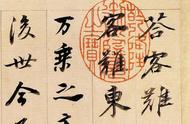 荅客難
客難東
万乘之
後世今